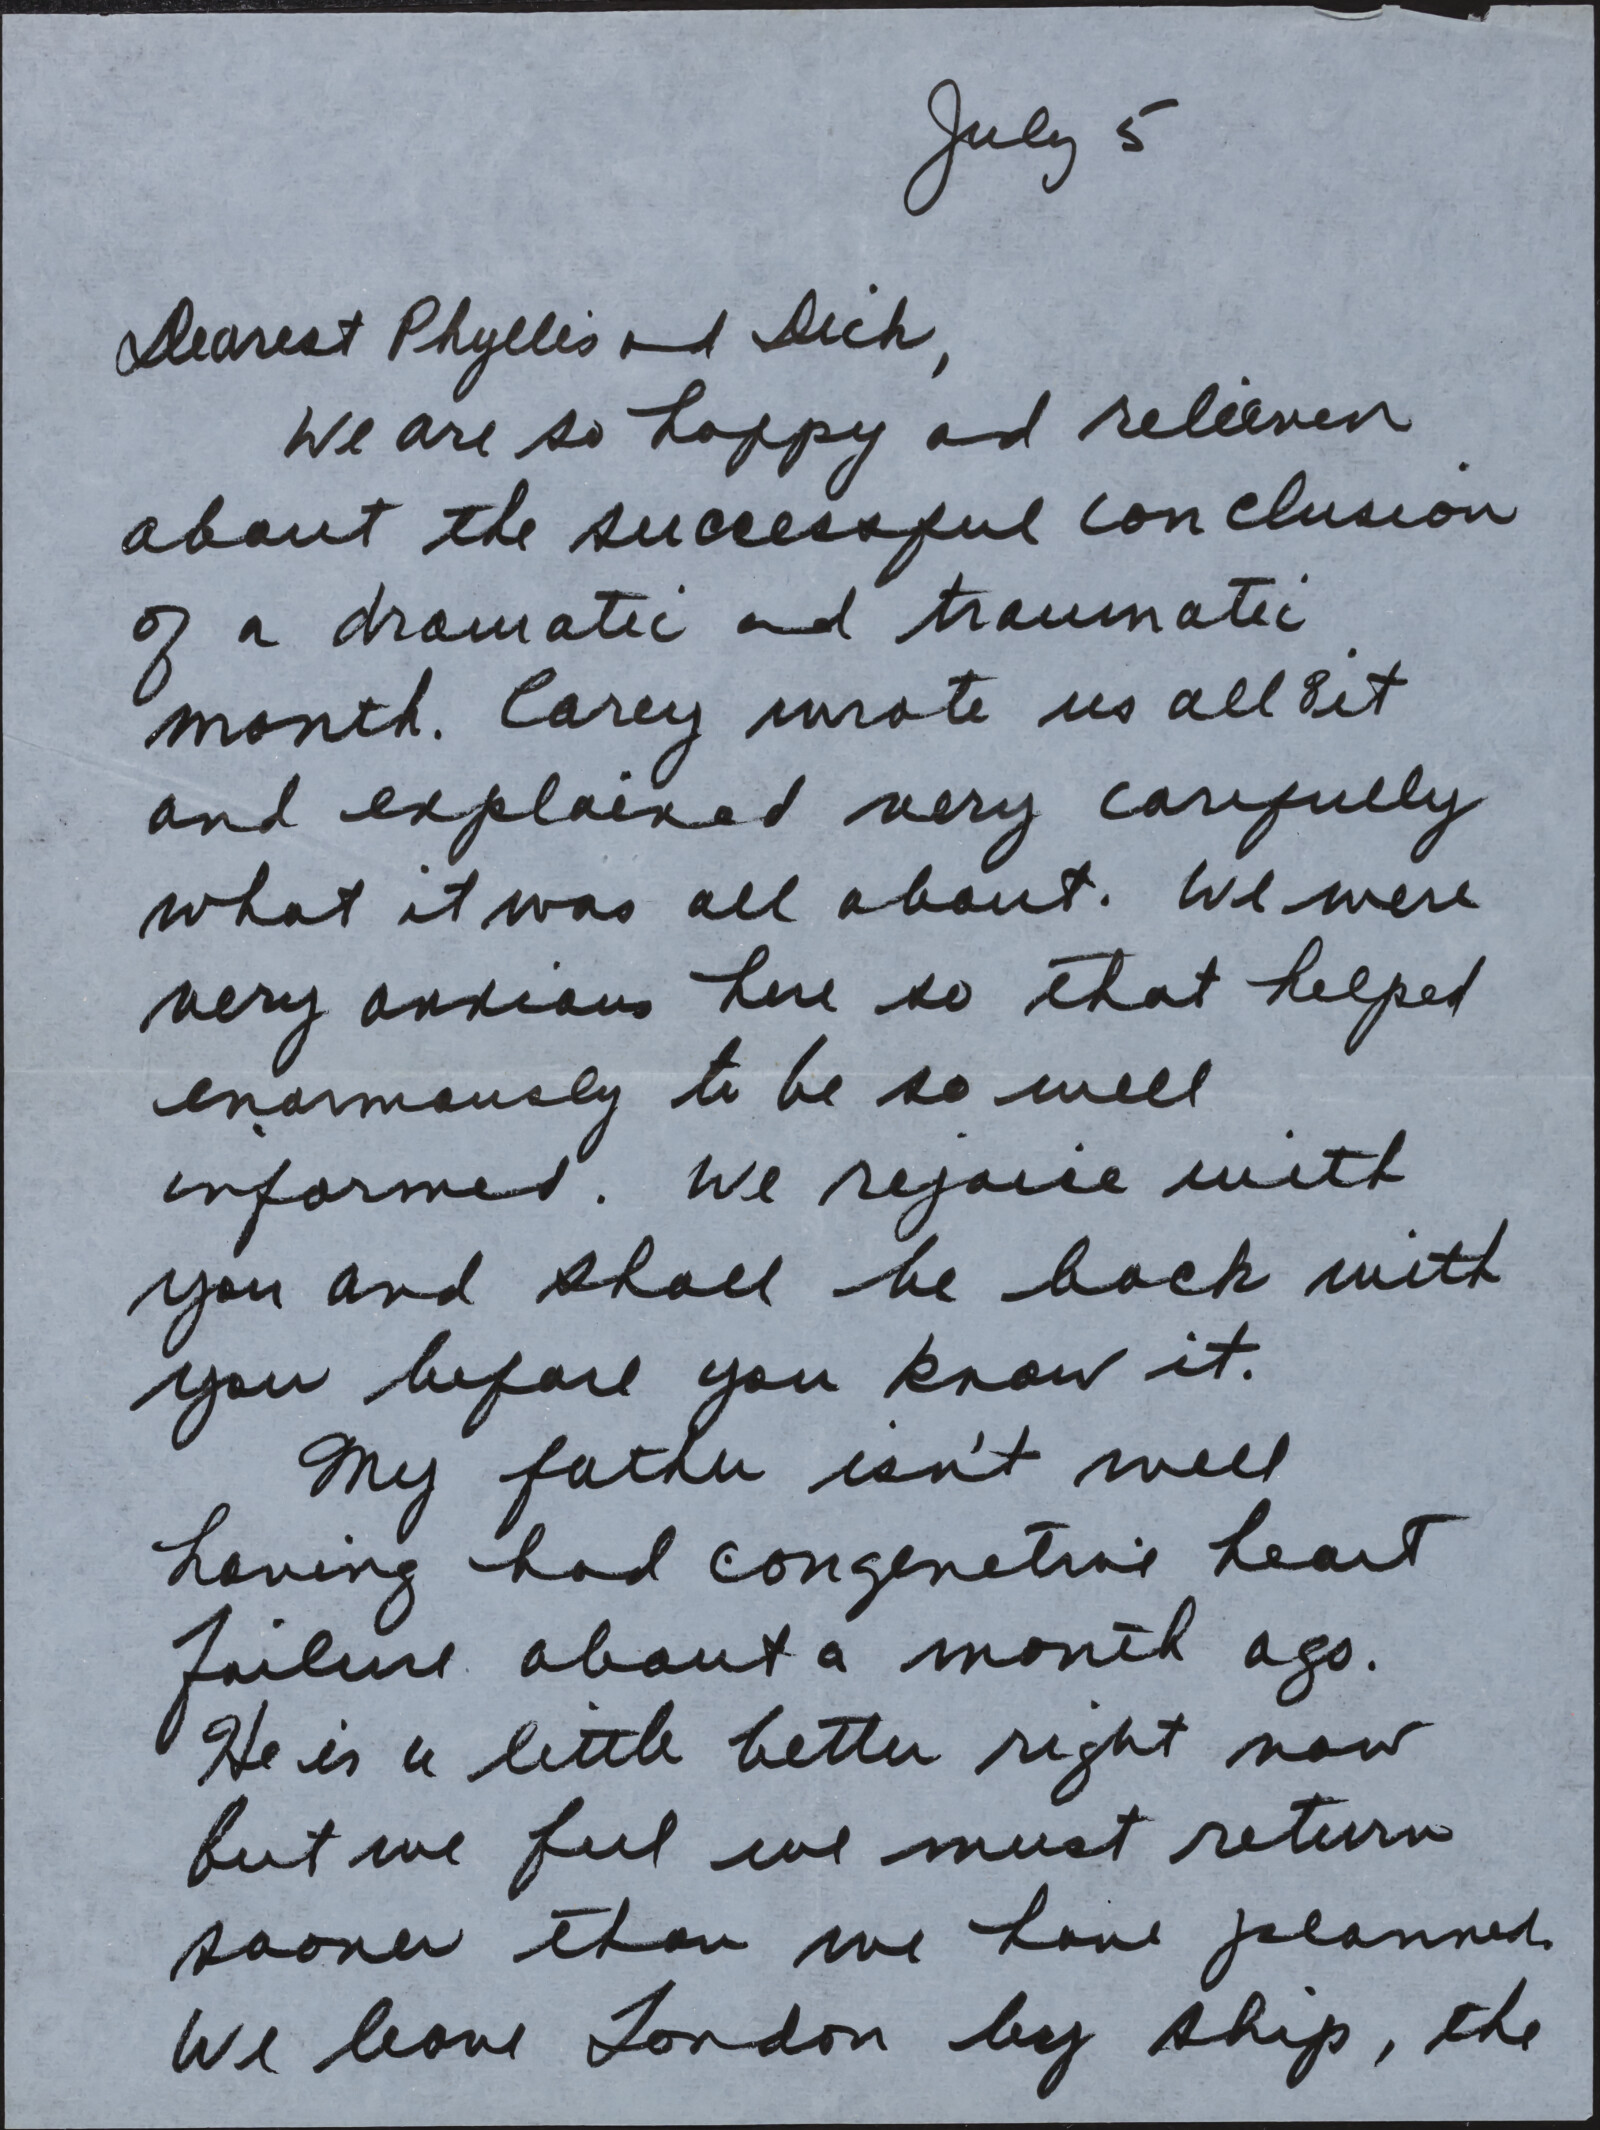 July 5
Dearest Phyllis and Dick,
We are so happy and relieven
about the successful conclusion
of a dramatic and traumatic
month. Carey wrote us all it
and explained very carefully
what it was all about. We were
very anxious here so that helped
enormously to be so well
informed. We rejoice with
you and shall be back with
you before you know it.
My father isn't well
having had congenetive heart
failure about a month ago.
He is a little better right now
but we feel we must return
sooner than we have planned.
We leave London by ship, the